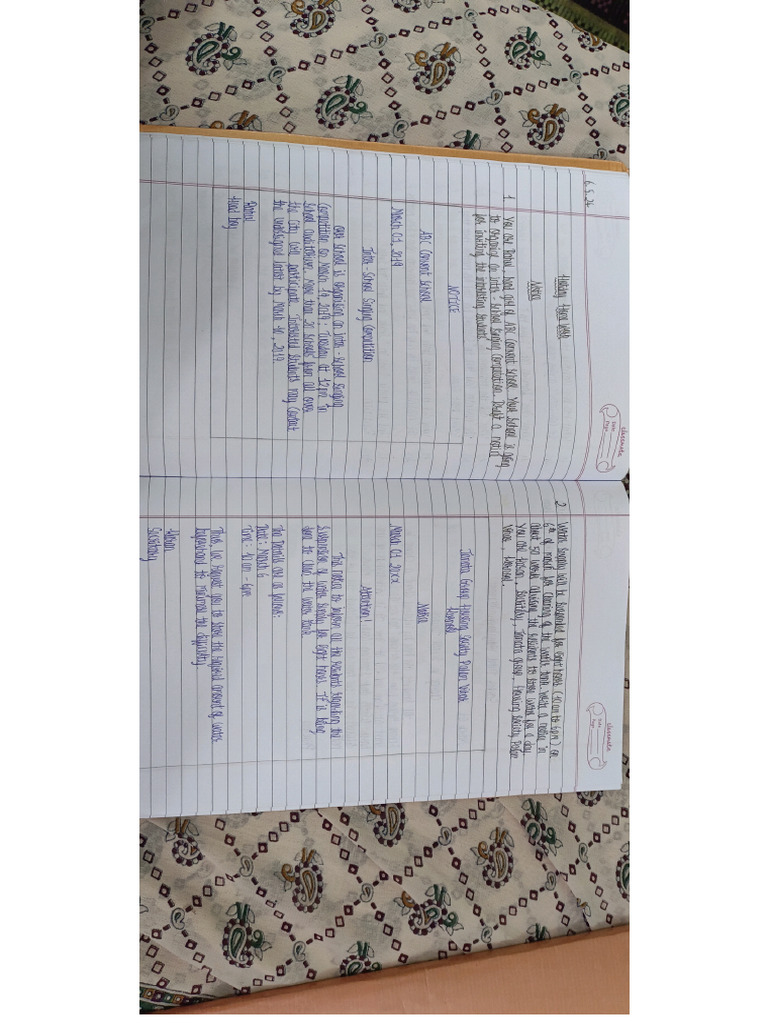 6.5.24
classmate
Date
Page
Holiday Home Work
Notice
1. You are Rahul, head boy of ABC Convent School. Your School is going
to organise an inter-School Singing Competition. Draft a notice
for inviting the interesting students.
NOTICE
ABC Convent School
March 01, 2019
Inter-School Singing Competition
Our School is organising an inter-School Singing
Competition on March 19, 2019; Tuesday at 12pm in
School auditorium. More than 20 Schools from all over
the City will participate. Interested Students may Contact
the undersigned latest by March 10, 2019.
Rahul
Head boy
classmate
Date
Page
2 Water Supply will be Suspended for eight hours (10 am to 6 pm) on
6th of march for cleaning of the water tank. Write a notice in
about 50 words advising the residents to store water for a day.
You are Karan, Secretary, Janata group, Housing Society, Palam
Vihar,
Janata Group Housing Society Palam Vihar
Notice
March 01, 20XX
Attention!
This notice to inform all the residents regarding the
Suspension of water Supply for eight hours. IT is being
done to clean the water tank.
The Details are as follows:
Date: March 6
Time: 10 am - 6 pm
Thus, we request you to store the required amount of water
beforehand to minimise the difficulty.
Karan
Secretary